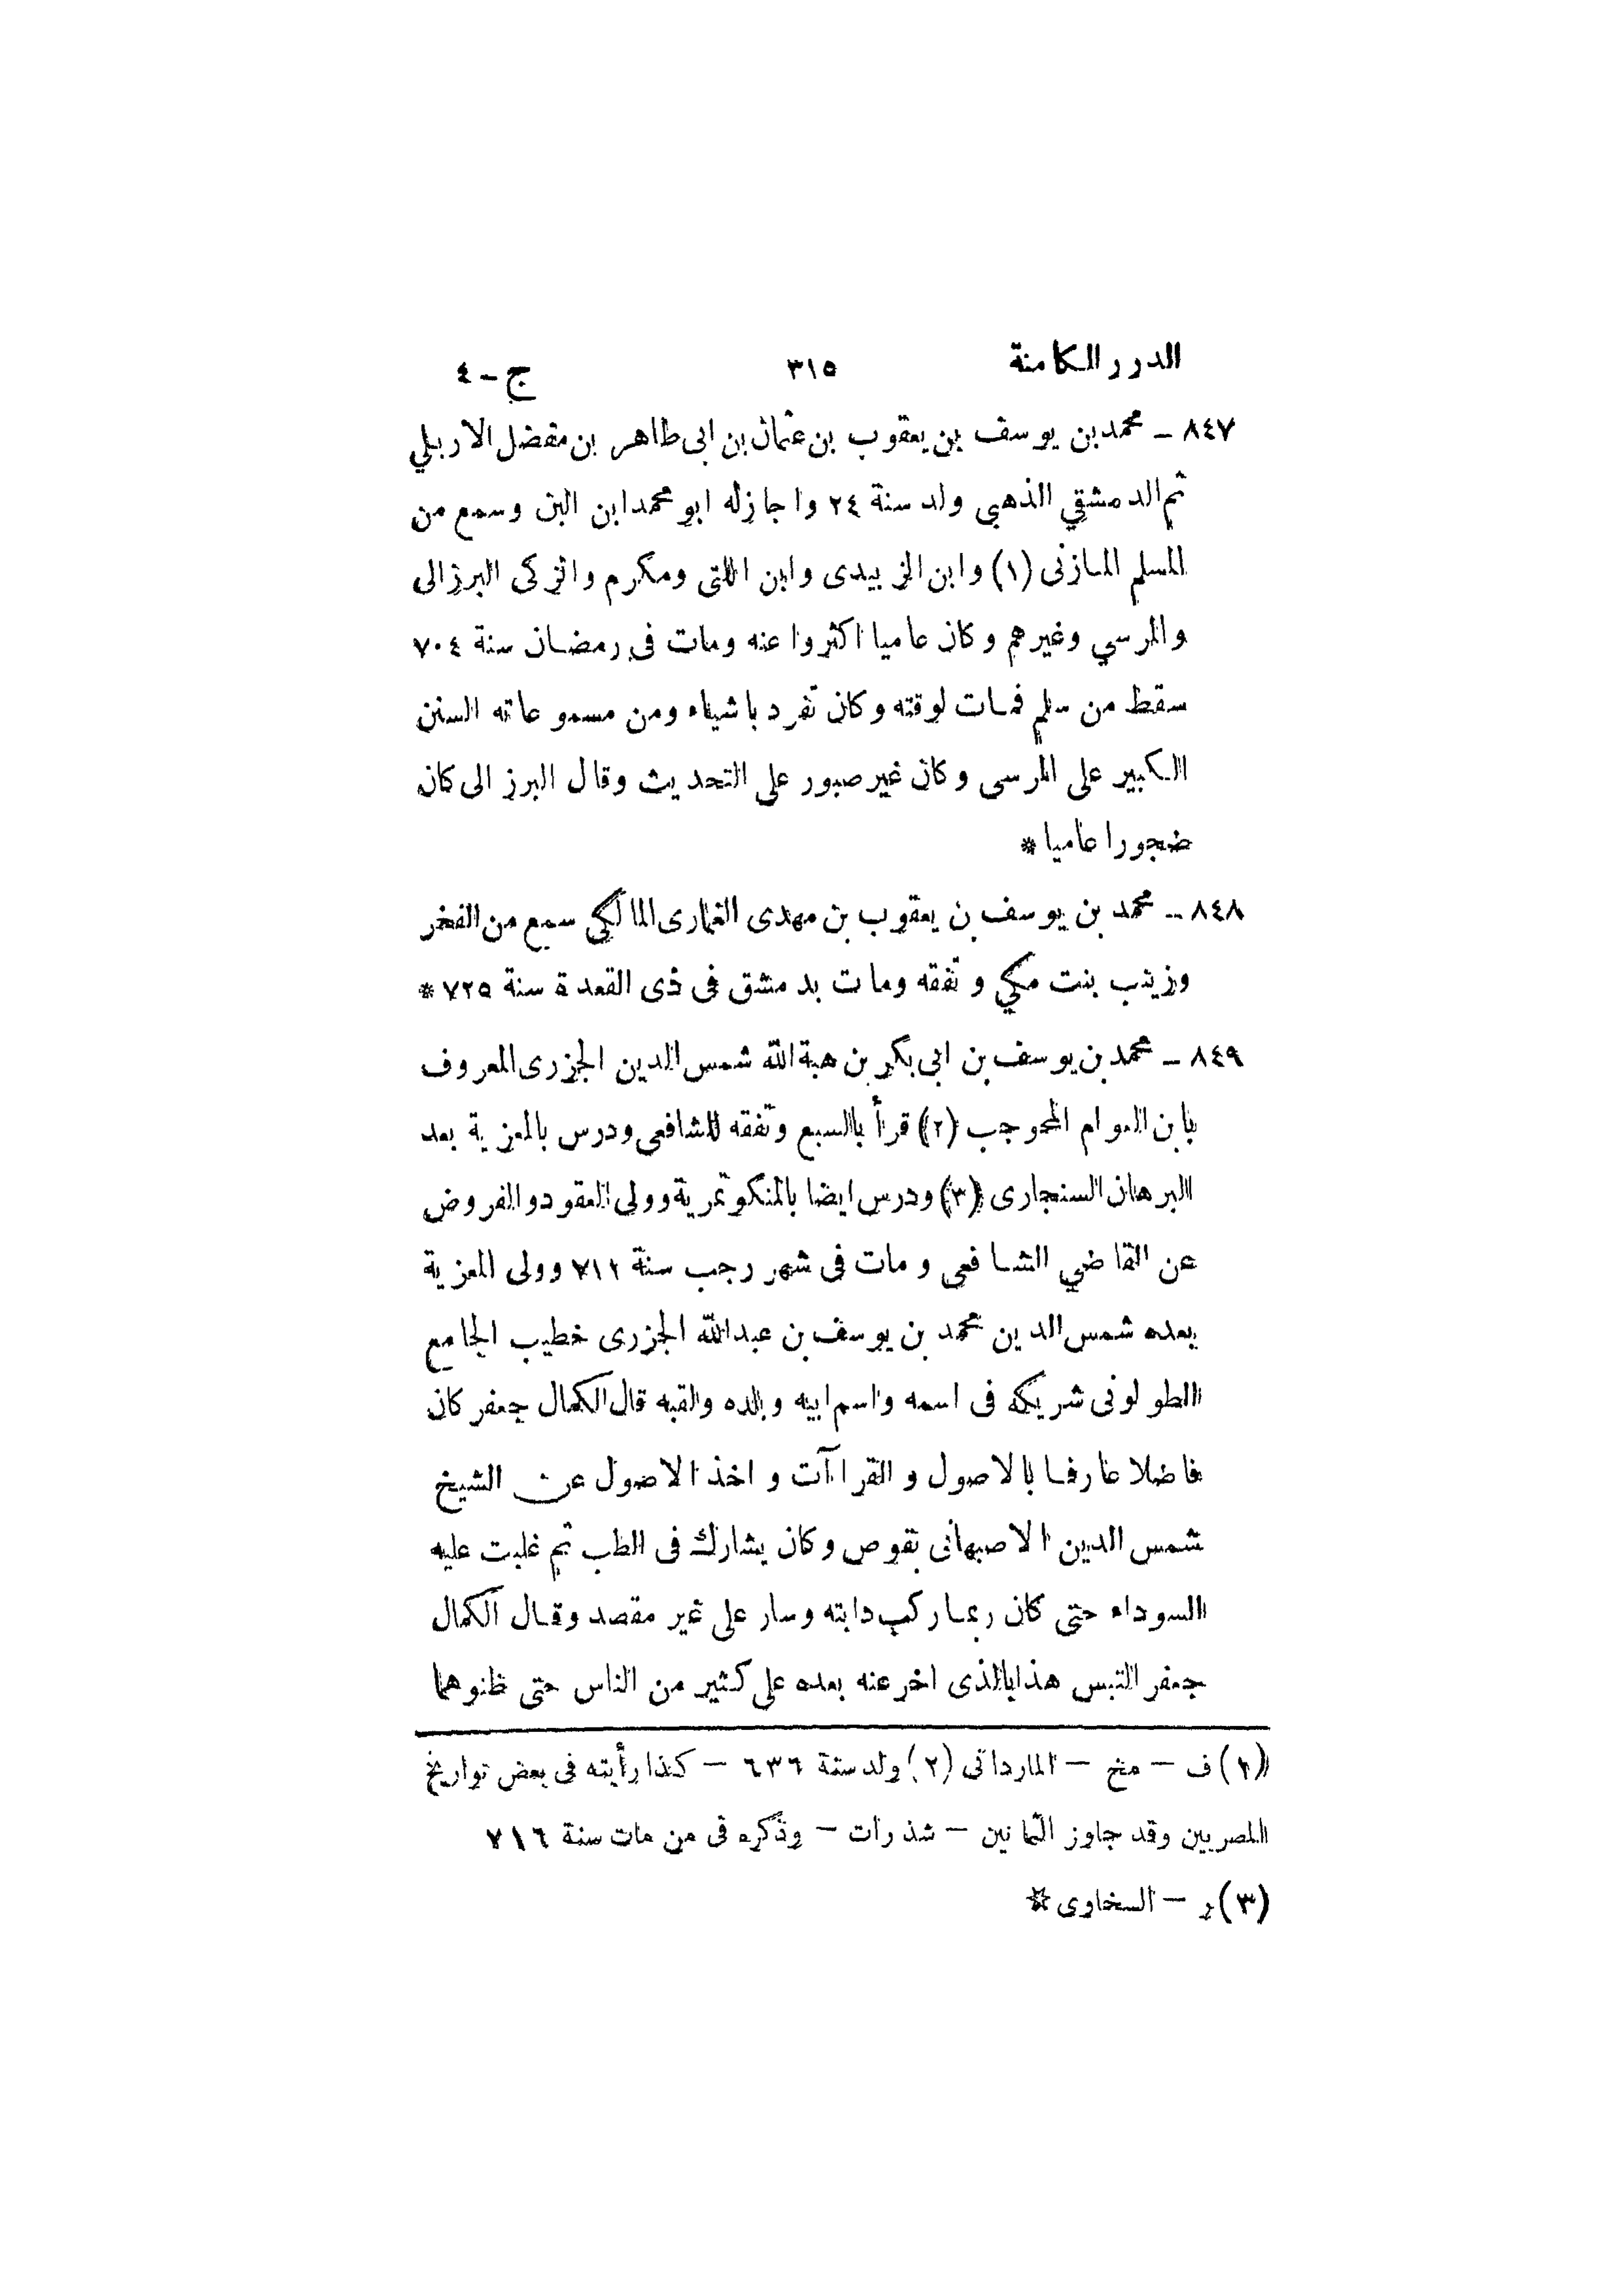 الدرر الكامنة ٣١٥ ج - ٤
٨٤٧ - محمد بن يوسف بن يعقوب بن عثمان بن ابى طاهر بن مفضل الاربلي
ثم الدمشقي الذهبى ولد سنة ٢٤ واجازله ابو محمد ابن البن وسمع من
المسلم المازنى (١) وابن الزبيدى وابن اللتى ومكرم والزكى البرزالى
والمرسي وغيرهم وكان عاميا اكثروا عنه ومات فى رمضان سنة ٧٠٤
سقط من سلم فمات لوقته وكان تفرد باشياء ومن مسموعاته السنن
الكبير على المرسى وكان غير صبور على التحديث وقال البرزالى كان
ضجورا عاميا *
٨٤٨ - محمد بن يوسف بن يعقوب بن مهدى الغمارى المالكي سمع من الفخر
وزينب بنت مكي وتفقه ومات بدمشق فى ذى القعدة سنة ٧٢٥ *
٨٤٩ - محمد بن يوسف بن ابى بكر بن هبة الله شمس الدين الجزرى المعروف
بابن العوام المحوجب (٢) قرأ بالسبع وتفقه للشافعى ودرس بالمعزية بعد
البرهان السنجارى (٣) ودرس ايضا بالمنكوتمرية وولى العقود والفروض
عن القاضي الشافعى ومات فى شهر رجب سنة ٧١١ وولى المعزية
بعده شمس الدين محمد بن يوسف بن عبدالله الجزرى خطيب الجامع
الطولونى شريكه فى اسمه واسم ابيه وبلده ولقبه قال الكمال جعفر كان
فاضلا عارفا بالاصول والقراآت واخذ الاصول عن الشيخ
شمس الدين الاصبهانى بقوص وكان يشارك فى الطب ثم غلبت عليه
السوداء حتى كان ربما ركب دابته وسار على غير مقصد وقال الكمال
جعفر التبس هذا بالذى اخر عنه بعده على كثير من الناس حتى ظنوهما
(١) ف - مخ - الماردانى (٢) ولد سنة ٦٣٦ - كذا رأيته فى بعض تواريخ
المصريين وقد جاوز الثمانين - شذرات - وذكره فى من مات سنة ٧١٦
(٣) ر - السخاوى *